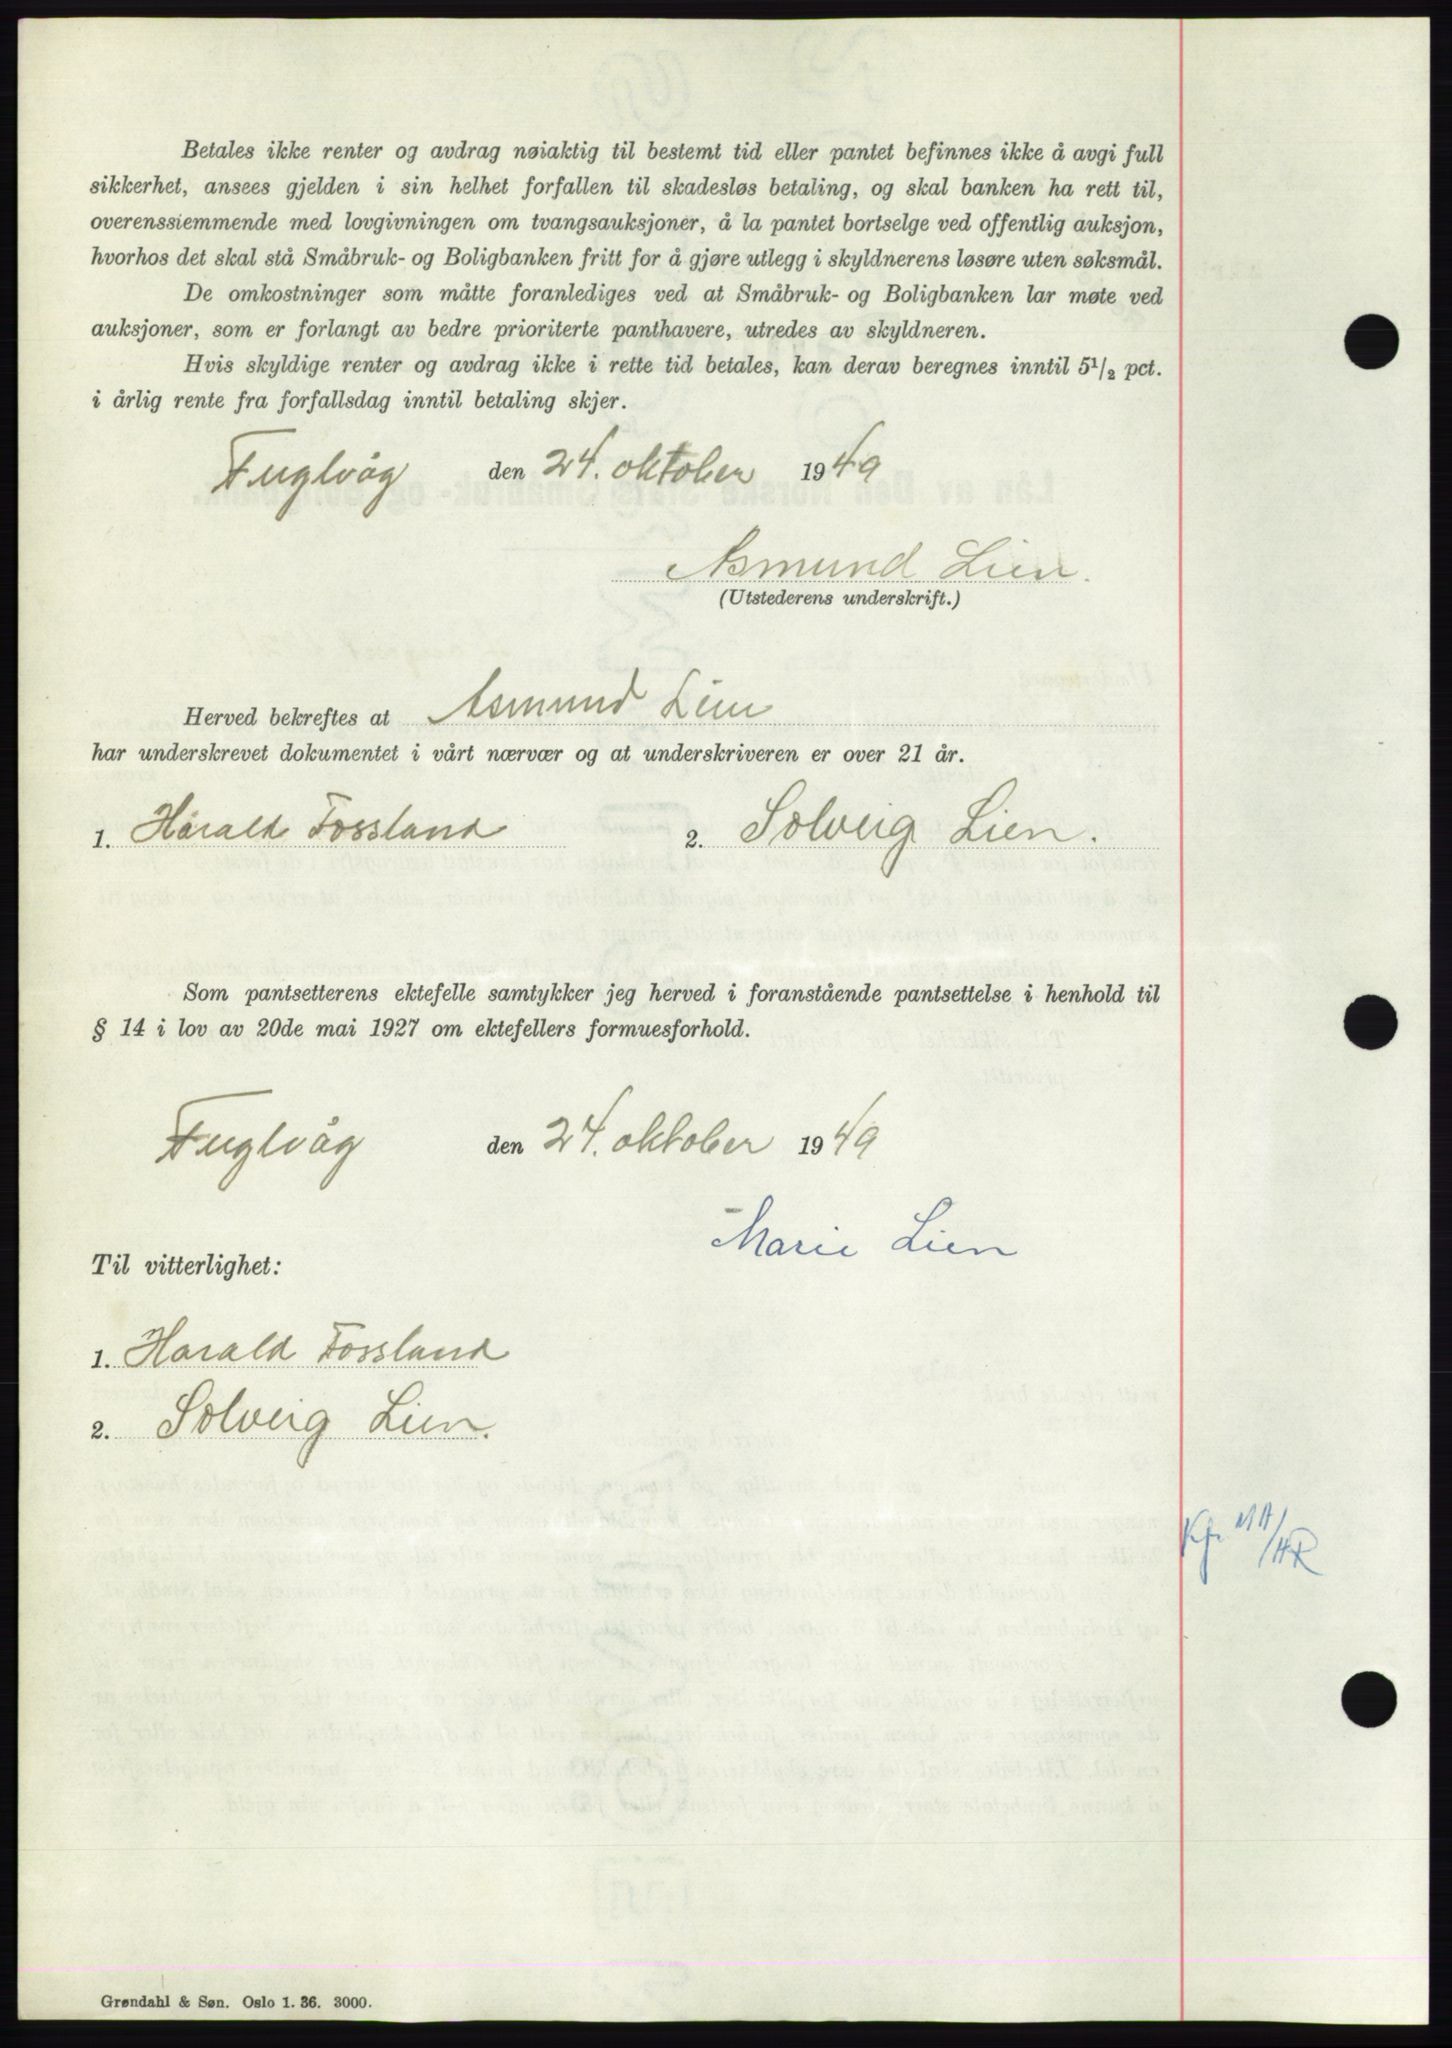 Betales ikke renter og avdrag nøiaktig til bestemt tid eller pantet befinnes ikke å avgi full
sikkerhet, ansees gjelden i sin helhet forfallen til skadesløs betaling, og skal banken ha rett til,
overenssiemmende med lovgivningen om tvangsauksjoner, å la pantet bortselge ved offentlig auksjon,
hvorhos det skal stå Småbruk- og Boligbanken fritt for å gjøre utlegg i skyldnerens løsøre uten søksmål.
De omkostninger som måtte foranlediges ved at Småbruk- og Boligbanken lar møte ved
auksjoner, som er forlangt av bedre prioriterte panthavere, utredes av skyldneren.
Hvis skyldige renter og avdrag ikke i rette tid betales, kan derav beregnes inntil 5 1/2 pct.
i årlig rente fra forfallsdag inntil betaling skjer.
Fuglvåg den 24. oktober 1949
Asmund Lien.
(Utstederens underskrift.)
Herved bekreftes at Asmund Lien
har underskrevet dokumentet i vårt nærvær og at underskriveren er over 21 år.
1. Harald Fossland 2. Solveig Lien.
Som pantsetterens ektefelle samtykker jeg herved i foranstående pantsettelse i henhold til
§ 14 i lov av 20de mai 1927 om ektefellers formuesforhold.
Fuglvåg den 24. oktober 1949
Marie Lien
Til vitterlighet:
1. Harald Fossland
2. Solveig Lien.
Kf. MA/HR
Grøndahl & Søn. Oslo 1. 36. 3000.